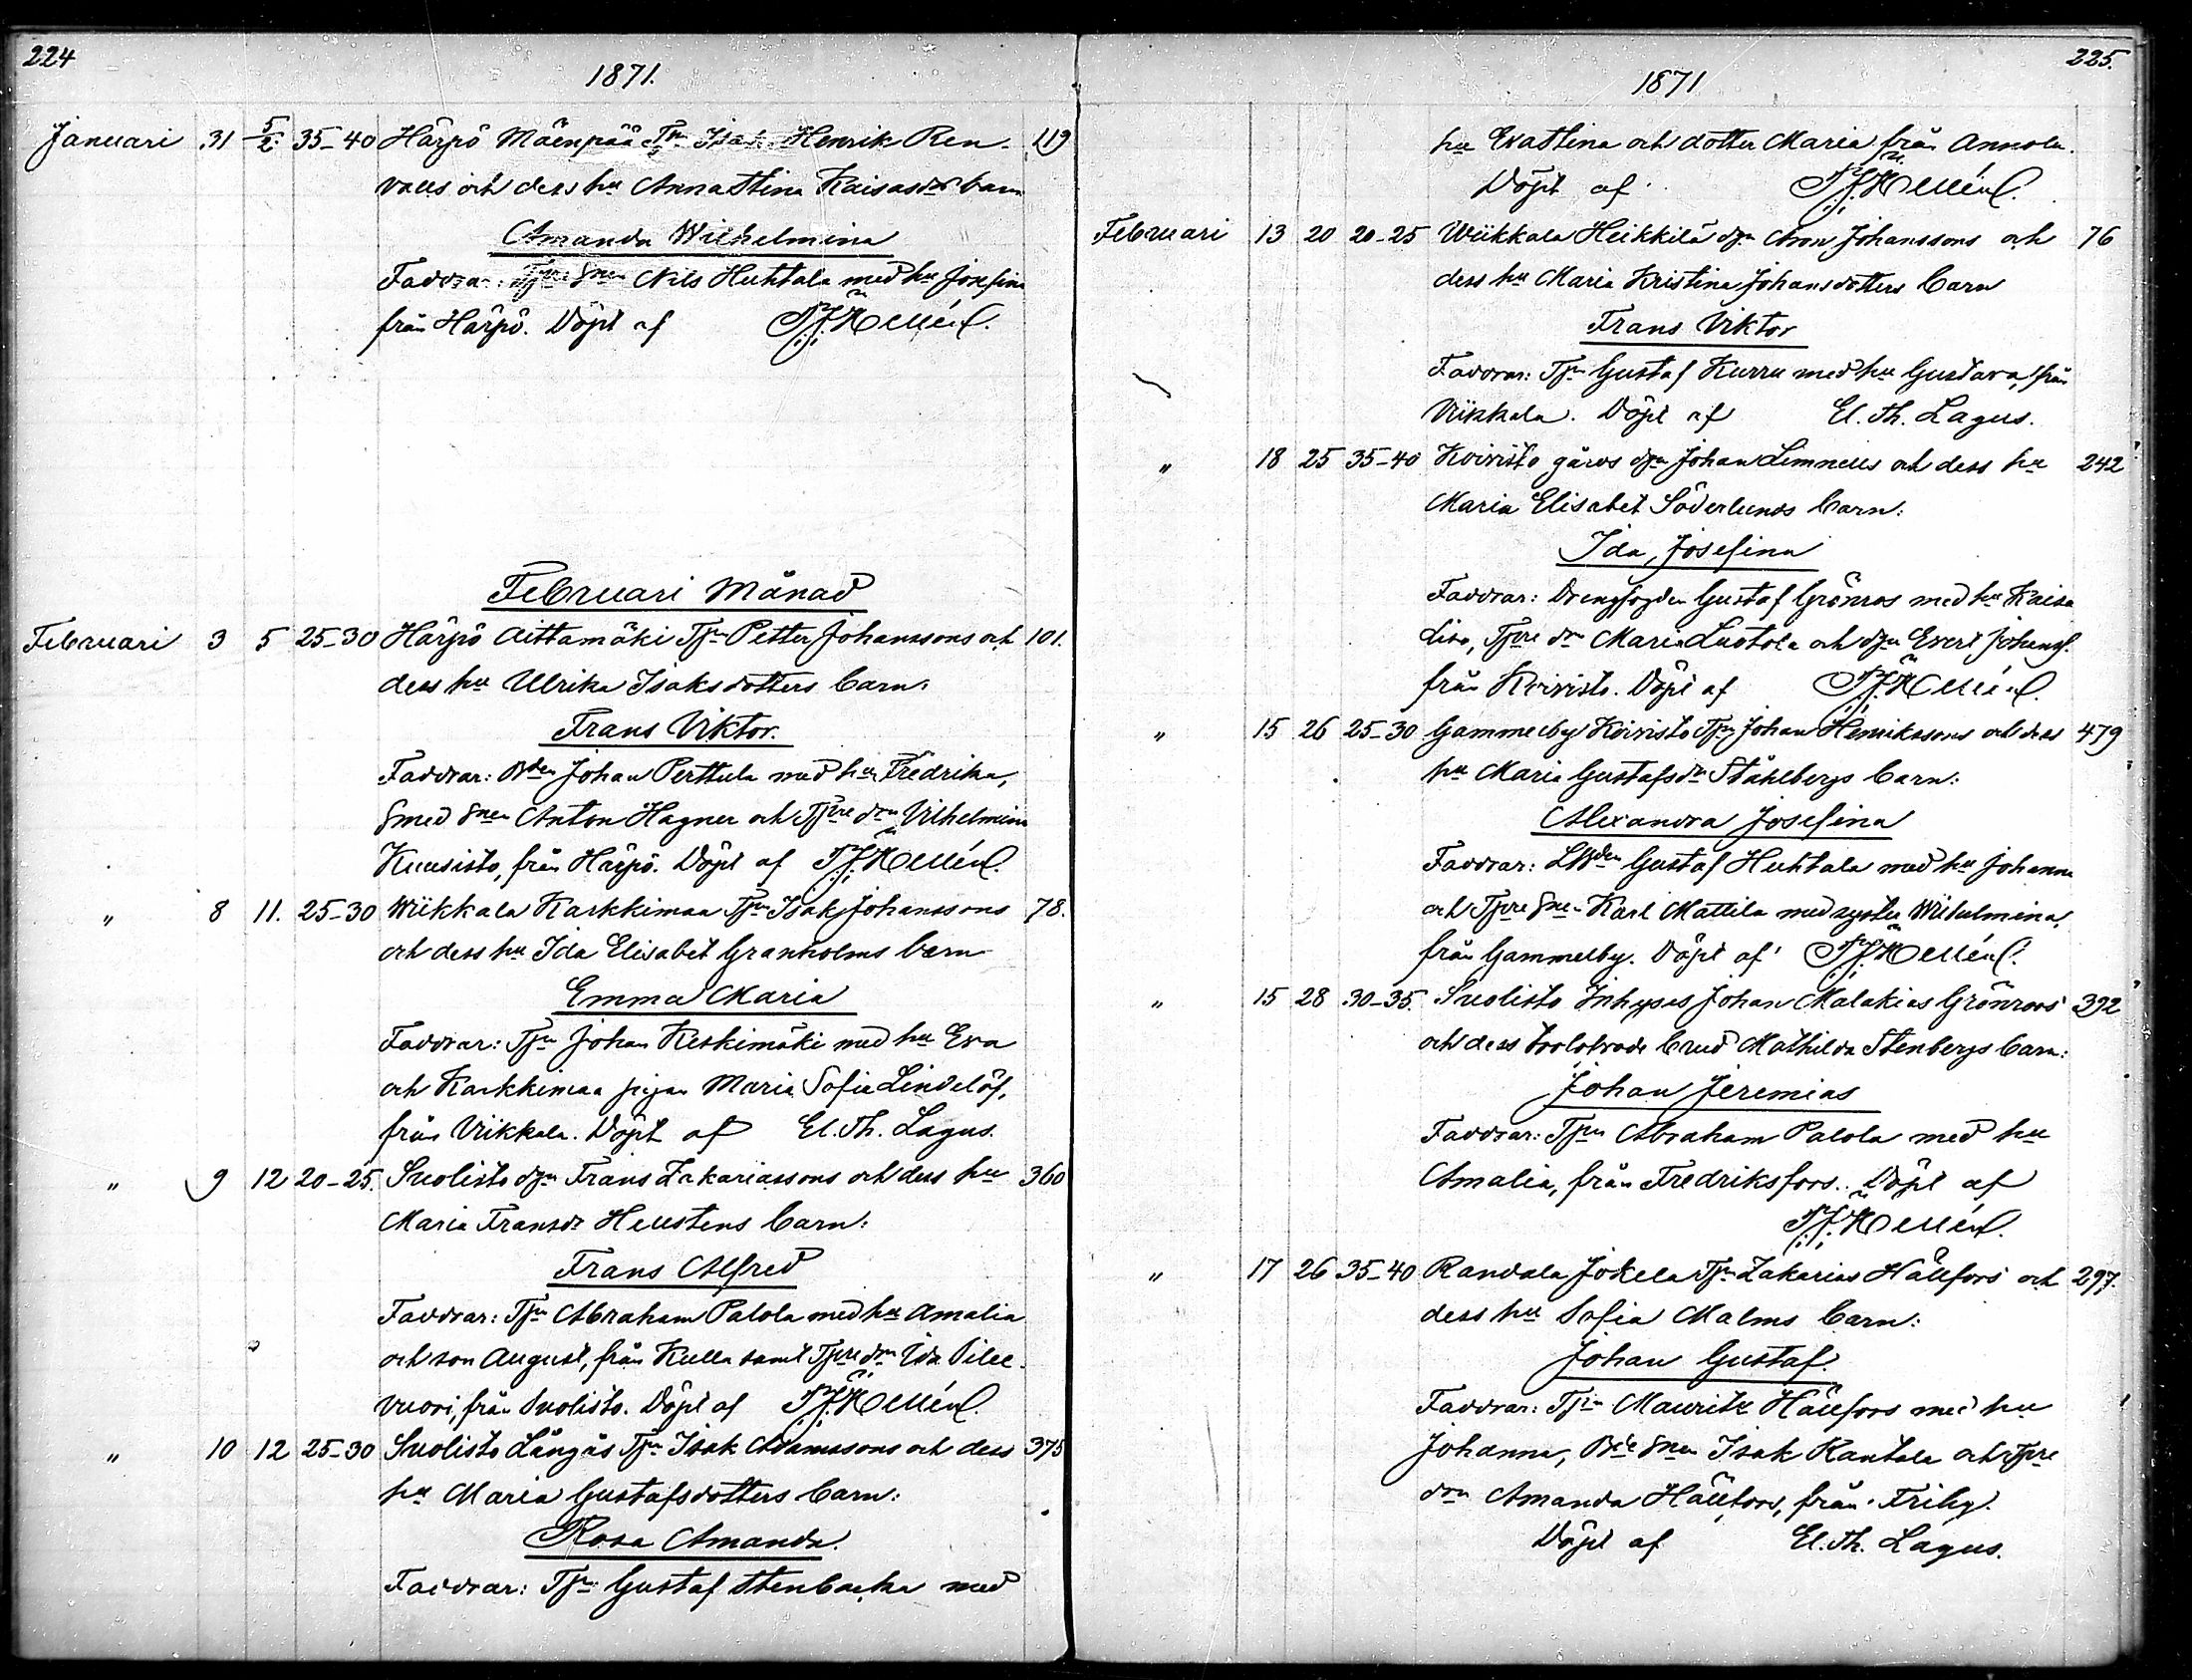 224
1871.
Januari 31 5/2. 35-40 Härpö Mäenpää Tpn Isak Henrik Ren- 119
valls och dess hu Anna Stina Kaisasdr barn
Amanda Wilhelmina
Faddrar: Tpre Snen Nils Huhtala med hu Josefina
från Härpö. Döpt af
Februari Månad
Februari 3 5 25-30 Härpö Aittamäki Tpn Petter Johanssons och 101.
dess hu Ulrika Isaksdotters barn:
Frans Viktor.
Faddrar: Bden Johan Perttula med hu Fredrika,
Smed Snen Anton Hagner och Tpre drn Vilhelmina
Kuusisto, från Härpö. Döpt af
" 8 11. 25-30 Wiikkala Karkkimaa Tpn Isak Johanssons 78.
och dess hu Ida Elisabet Granholms barn
Emma Maria
Faddrar: Tpn Johan Keskimäki med hu Eva
och Karkkimaa pigan Maria Sofia Lindelöf,
från Viikkala. Döpt af El. Th. Lagus.
" 9 12 20-25. Suolisto dgn Frans Zakariassons och dess hu 360
Maria Fransdr Hellstens barn:
Frans Alfred
Faddrar: Tpn Abraham Palola med hu Amalia
och son August, från Kulla samt Tpre drn Ida Pile-
vuori, från Suolisto. Döpt af
" 10 12 25-30 Suolisto Långås Tpn Isak Adamssons och dess 375
hu Maria Gustafsdotters barn:
Rosa Amanda.
Faddrar: Tpn Gustaf Stenbacka med
225.
1871
hu Eva Stina och dotter Maria från Annola.
Döpt af
Februari 13 20 20-25 Wiikkala Heikkilä dgn Aron Johanssons och 76
dess hu Maria Kristina Johansdotters barn
Frans Viktor
Faddrar: Tpn Gustaf Kurru med hu Gustava, från
Viikkala. Döpt af El. Th. Lagus.
" 18 25 35-40 Koivisto gårds dgn Johan Limnells och dess hu 242
Maria Elisabet Söderlunds barn:
Ida Josefina
Faddrar: Drengfogden Gustaf Grönros med hu Kaisa
Lisa, Tpre drn Maria Luotola och dgn Evert Johanss.
från Koivisto. Döpt af
" 15 26 25-30 Gammelby Koivisto Tpn Johan Henrikssons och dess 479
hu Maria Gustafsdr Ståhlbergs barn:
Alexandra Josefina
Faddrar: LBden Gustaf Huhtala med hu Johanna
och Tpre Snen Karl Mattila med syster Wilhelmina,
från Gammelby. Döpt af
" 15 28 30-35. Suolisto Inhyses Johan Malakias Grönroos 392
och dess trolofvade brud Mathilda Stenbergs barn:
Johan Jeremias
Faddrar: Tpn Abraham Palola med hu
Amalia, från Fredriksfors. Döpt af
" 17 26 35-40 Randala Jokela Tpn Zakarias Hällfors och 297.
dess hu Sofia Malms barn:
Johan Gustaf.
Faddrar: Tpn Mauritz Hällfors med hu
Johanna, Bde Snen Isak Rantala och Tpre
drn Amanda Hällfors, från Friby.
Döpt af El. Th. Lagus.